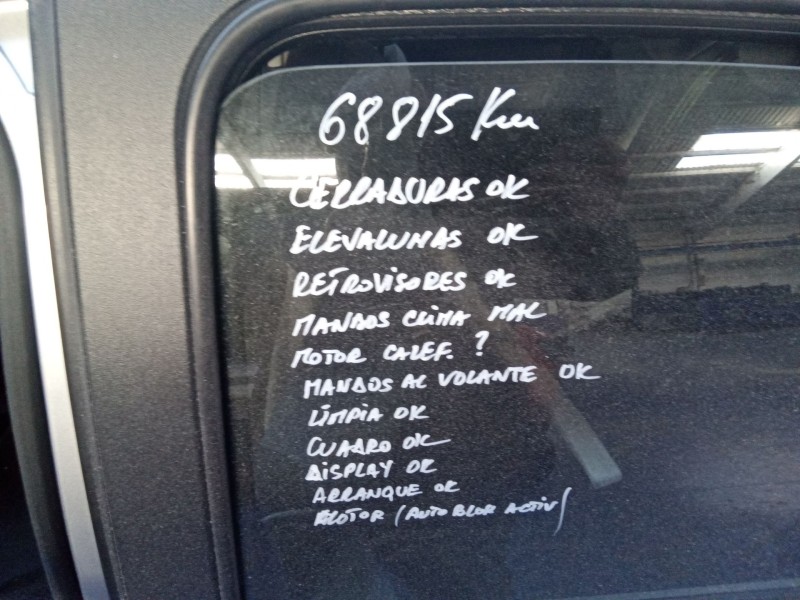 68815 Km
CERRADURAS OK
ELEVALUNAS OK
RETROVISORES OK
MANDOS CLIMA MAL
MOTOR CALEF. ?
MANDOS AL VOLANTE OK
LIMPIA OK
CUADRO OK
DISPLAY OK
ARRANQUE OK
MOTOR (AUTO BLOK ACTIV)